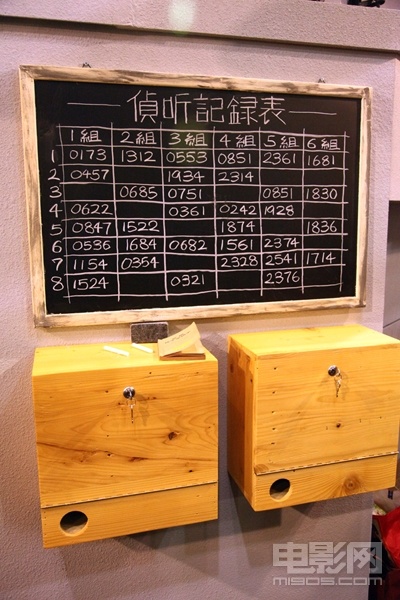 偵听記録表
1組 2組 3組 4組 5組 6組
1 0173 1312 0553 0851 2361 1681
2 0457 1934 2314
3 0685 0751 0851 1830
4 0622 0361 0242 1928
5 0847 1522 1874 1836
6 0536 1684 0682 1561 2374
7 1154 0354 2328 2541 1714
8 1524 0321 2376
电影网
m1905.com